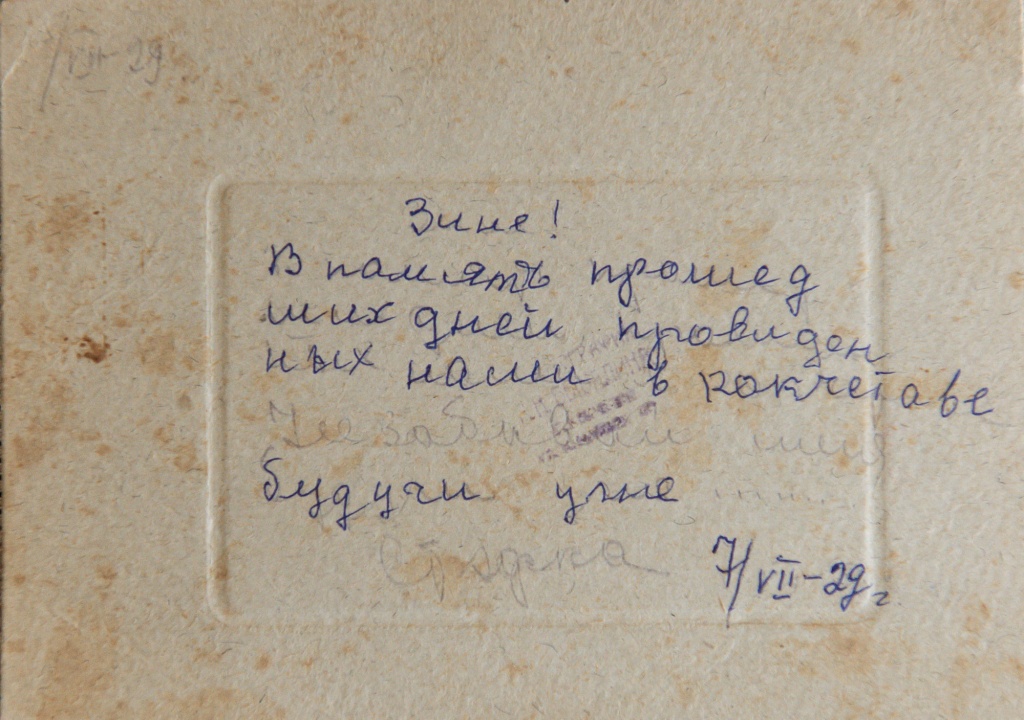 7/VII-29
Зине!
В память прошед
ших дней провиден
ных нами в кокчетаве
Незабывай
будучи
7/VII-29г